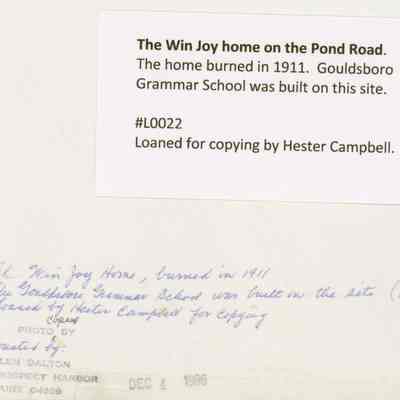 The Win Joy home on the Pond Road.
The home burned in 1911. Gouldsboro
Grammar School was built on this site.
#L0022
Loaned for copying by Hester Campbell.
Win Joy Home, burned in 1911
Gouldsboro Grammar School was built on the site
by Hester Campbell for Copying
PHOTO BY
by:
DALTON
PROSPECT HARBOR
DEC 4 1996